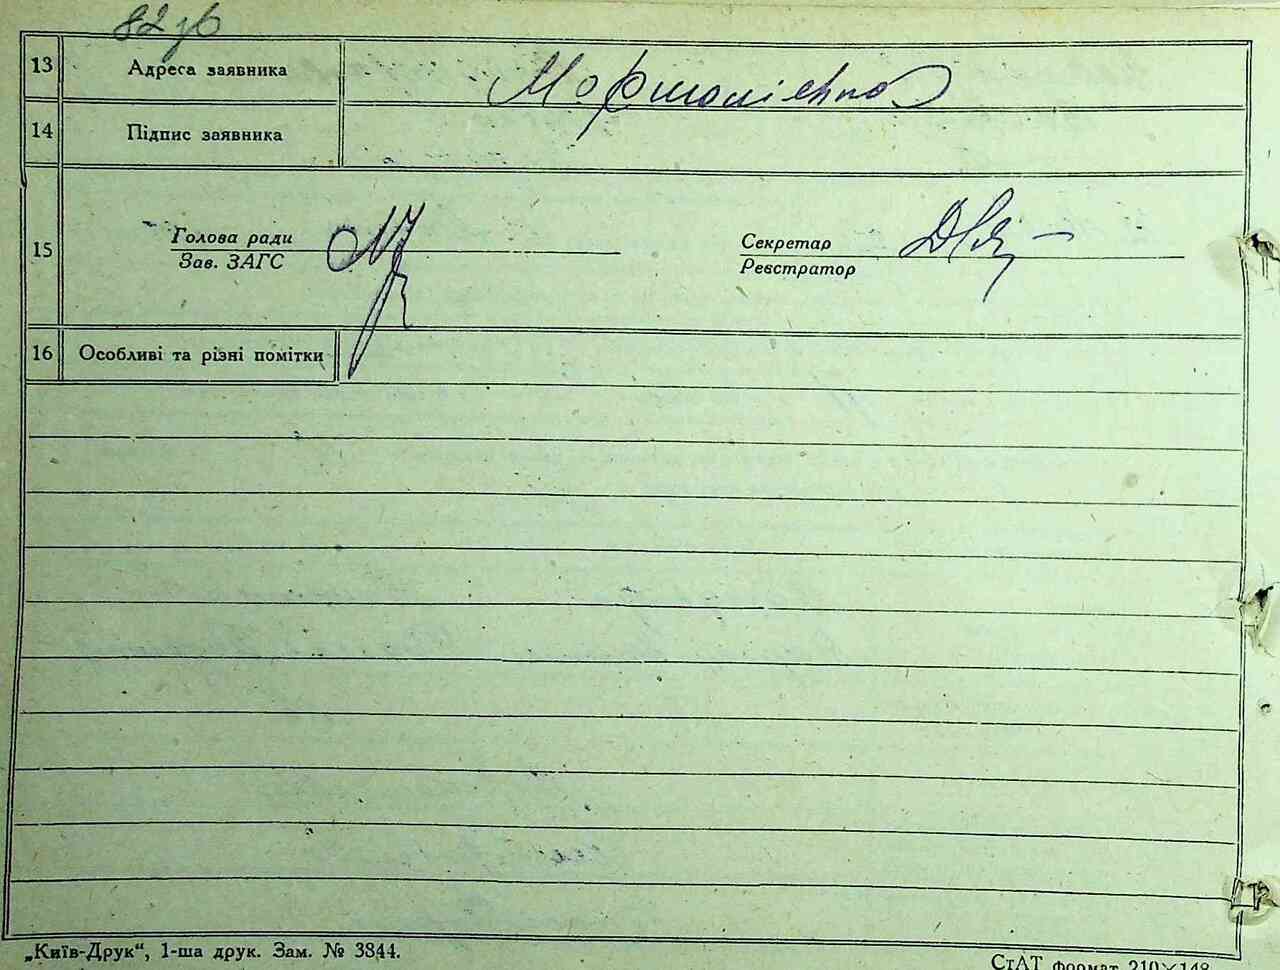 82 зв
13 Адреса заявника
14 Підпис заявника
15 Голова ради Секретар
Зав. ЗАГС Реєстратор
16 Особливі та різні помітки
„Київ-Друк“, 1-ша друк. Зам. № 3844.
СтАТ формат 210×148